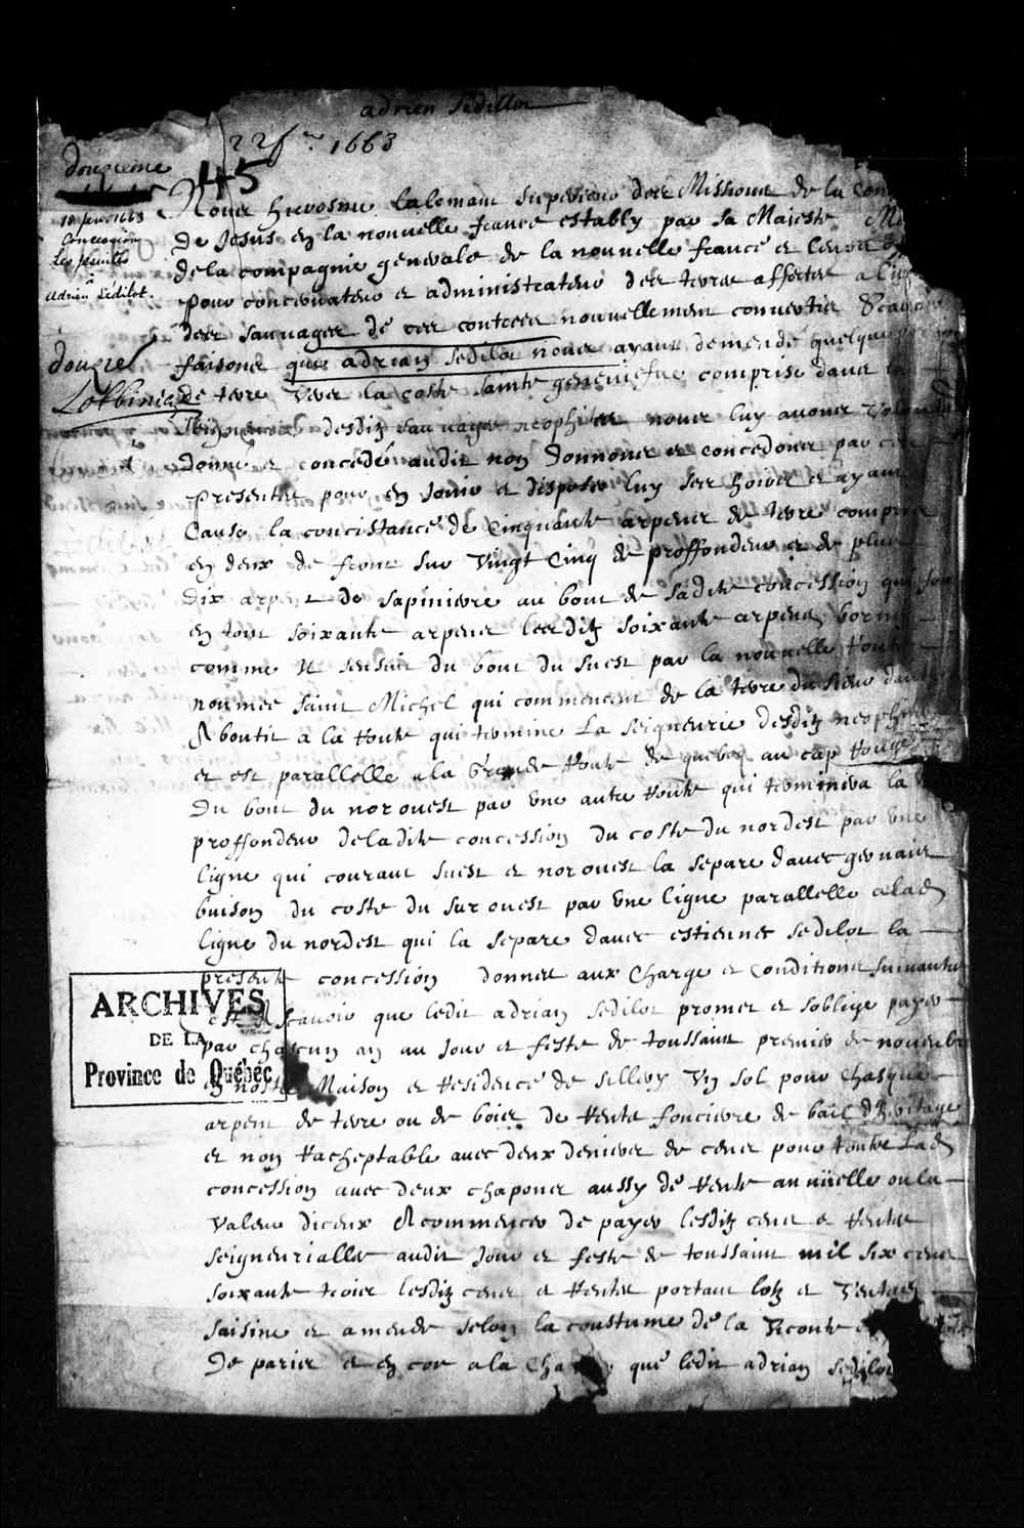 adrien Sedillot
22 f 1663
douziesme
45
18 fevr 1663
Concession
Les Jesuittes
à
Adrien Sedilot.
Nous hierosme Lalemant Superieur des Missions de la Com
De Jesus en la nouvelle france establÿ par sa Maiesté
de la compagnie generale de la nouvelle france et
pour conservateur et administrateur des terres affectee a
des sauvages de ces contrees nouvellement convertis
faisons que adrian sedilot nous ayant demendé quelque
de terre vers la coste sainte geneniefue comprise dans la
Seigneurie desditz sauvages neophites nous luy avons
donné et concedé audit nom donnons et concedons par
presentes pour en Jouir et disposer luy ses hoirs et ayant
Cause la concistance de Cinquante arpens de terre compris
en deux de front sur Vingt Cinq de proffondeur et de plus
dix arpent de sapiniere au bout de sadite concession qui
en tout soixante arpens lesditz soixante arpens
comme Il sensuit du bout du suest par la nouvelle route
nommee saint Michel qui commencent de la terre du sieur
Aboutit a la route qui termine La seigneurie desditz neophites
et est parallelle a la Grande Route de quebeq au cap Rouge
Du bout du norouest par une autre Route qui terminera la
proffondeur deladite concession du coste du nordest par une
ligne qui courant suest et norouest la separe davec gervais
buison du coste du surouest par une ligne parallelle alad
ligne du nordest qui la separe davec estiennes sedilot la
presente concession donnee aux Charge et Conditions suivante
est Ascavoir que ledit adrian sedilot promet et soblige payer
par chascun an au Jour et feste de toussaint premier de novembre
en nostre Maison et Residence de sillery Un sol pour chasque
arpent de terre ou de bois de Rente fonciere de bail
et non Racheptable avec deux deniers de cens pour toutte Lad
concession avec deux chapons aussy de Rente annüelle ou la
Valeur diceux A commencer de payer lesditz cens et Rentes
seigneurialle audit Jour et feste de toussaint mil six cens
soixante trois lesditz cens et Rentes portant lotz et Ventes
saisine et amende selon la coustume de la Viconté
De paris et en cor a la Cha que ledit adrian sedilot
douzel
Lotbiniere
ARCHIVES
DE LA
Province de Québec